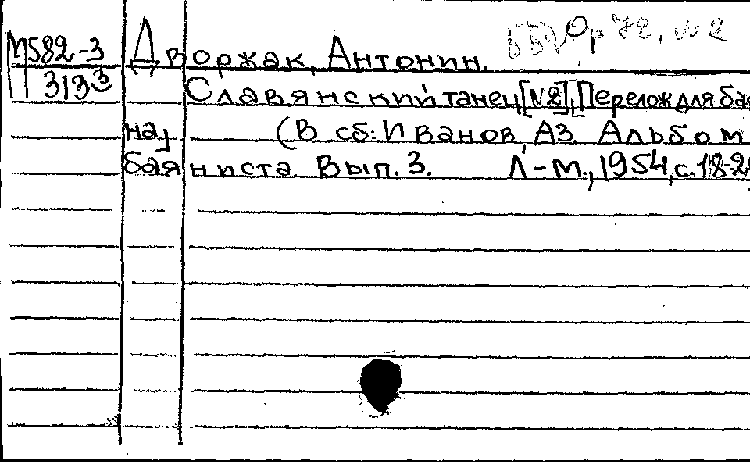 М582-3 Дворжак, Антонин. Ор 72, №2
3133 Славянский танец [№2]. Перелож. для бая
на] (В сб: Иванов, АЗ Альбом
баяниста Вып. 3. Л-М., 1954, с. 18-2